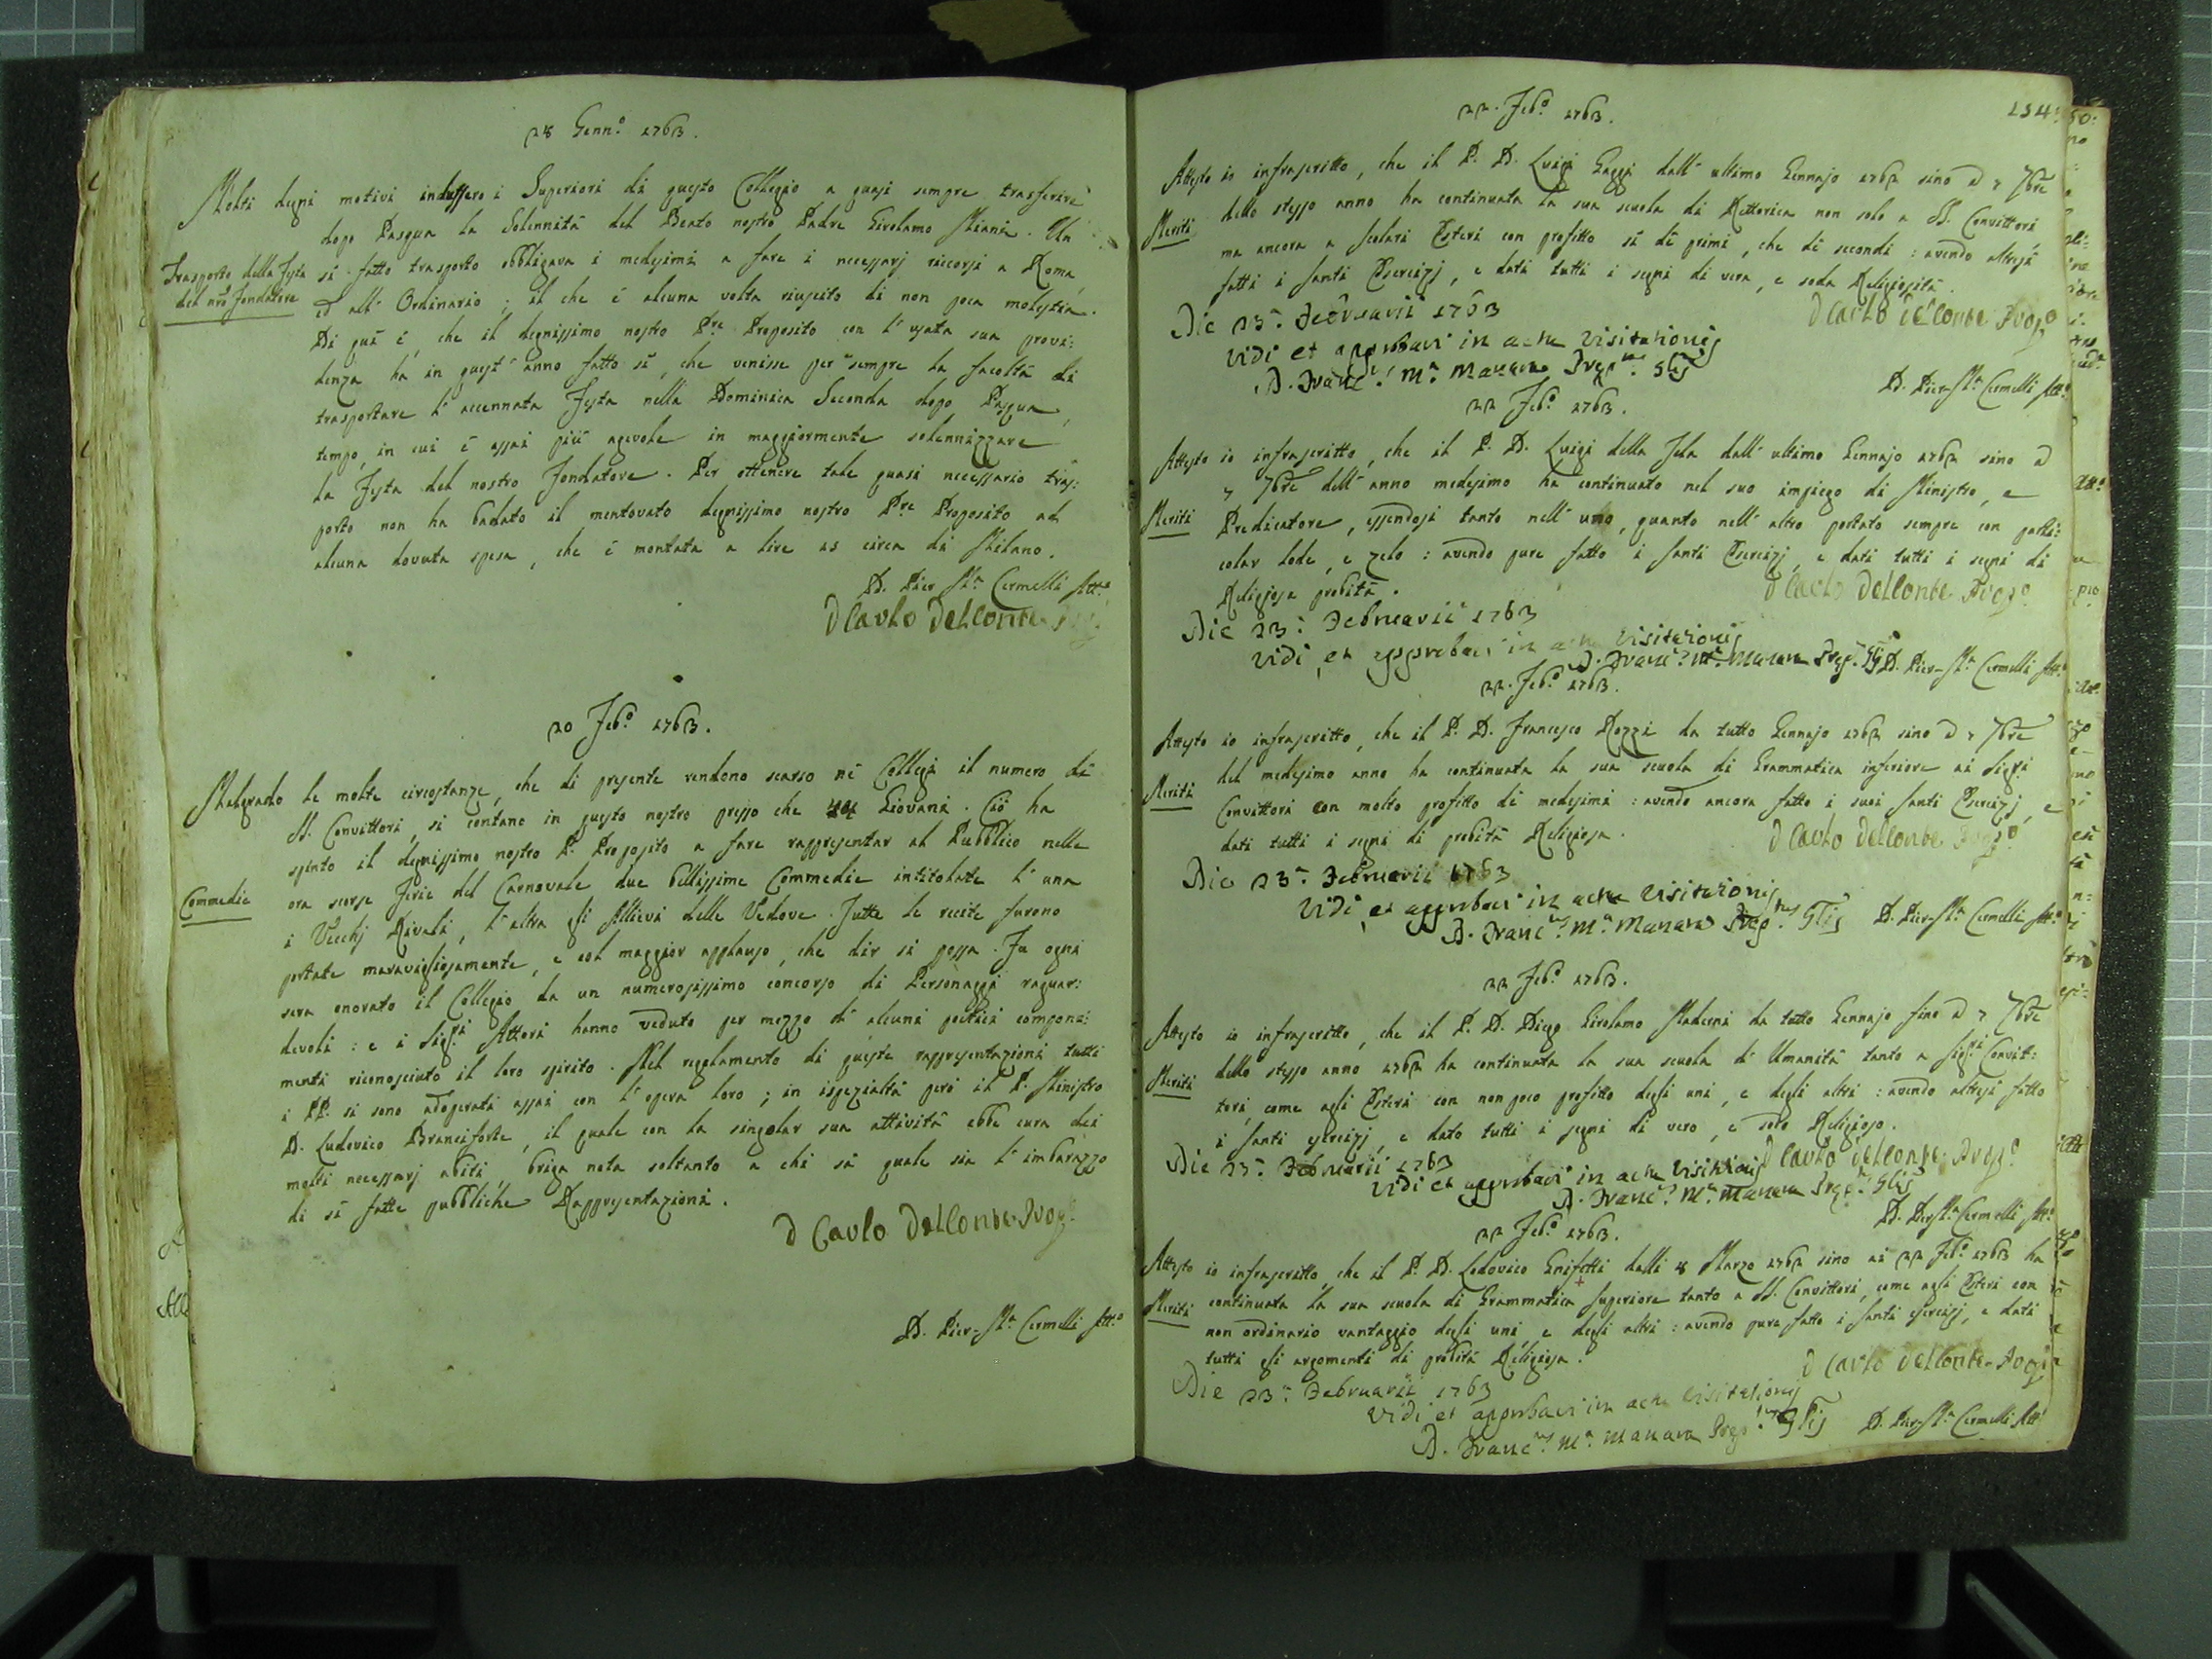 28 Genn.o 1763.
Molti degni motivi indussero i Superiori di questo Collegio a quasi sempre trasferire
dopo Pasqua la Solennità del Beato nostro Padre Girolamo Miani. Un
Trasporto della Festa
del nro Fondatore
sì fatto trasporto obbligava i medesimi a fare i necessarj ricorsi a Roma,
ed all' Ordinario; il che è alcuna volta riuscito di non poca molestia.
Di quì è, che il degnissimo nostro Pre Proposito con l' usata sua provi:
denza ha in quest' anno fatto sì, che venisse per sempre la facoltà di
trasportare l' accennata Festa nella Dominica Seconda dopo Pasqua,
tempo, in cui è assai più agevole in maggiormente solennizzare
la Festa del nostro Fondatore. Per ottenere tale quasi necessario tras:
porto non ha badato il mentovato degnissimo nostro Pre Proposito ad
alcuna dovuta spesa, che è montata a lire 25 circa di Milano.
D. Pier Ma Cermelli Att.o
D Carlo Delconte
20 Feb.o 1763.
Malgrado le molte circostanze, che di presente rendono scarso ne' Collegj il numero di
SS. Convittori, si contano in questo nostro presso che Giovani. Ciò ha
spinto il degnissimo nostro P. Proposito a fare rappresentar al Pubblico nelle
Commedie
ora scorse Ferie del Carnovale due bellissime Commedie intitolate l' una
i Vecchj Rivali, l' altra gli Allievi delle Vedove. Tutte le recite furono
portate maravigliosamente, e col maggior applauso, che dir si possa. Fu ogni
sera onorato il Collegio da un numerosissimo concorso di Personaggi raguar:
devoli: e i Sig.ri Attori hanno veduto per mezzo di alcuni poetici componi:
menti riconosciuto il loro spirito. Nel regolamento di queste rappresentazioni tutti
i PP. si sono adoperati assai con l' opera loro; in ispezialtà però il P. Ministro
D. Ludovico Branciforte, il quale con la singolar sua attività ebbe cura dei
molti necessarj abiti, briga nota soltanto a chi sà quale sia l' imbarazzo
di sì fatte pubbliche Rappresentazioni.
D Carlo Delconte Propo
D. Pier-Ma Cermelli Att.o
154
22. Feb.o 1763.
Attesto io infrascritto, che il P. D. Luigi Gaggi dall' ultimo Gennajo 1762 sino ad 7 7bre
Meriti
dello stesso anno ha continuata la sua scuola di Rettorica non solo a SS. Convittori
ma ancora a Scolari Esteri con profitto sì di primi, che di secondi: avendo altresì
fatti i santi Esercizj, e dati tutti i segni di vera, e soda Religiosità.
D Carlo Delconte Propo
Die 23a Februarii 1763
Vidi et approbavi in actu visitationis
D. Franc.s Ma Manara Prep.s Glis
D. Pier-Ma Cermelli Att.o
22 Feb.o 1763.
Attesto io infrascritto, che il P. D. Luigi della Tela dall' ultimo Gennajo 1762 sino ad
7 7bre dell' anno medesimo ha continuato nel suo impiego di Ministro, e
Meriti
Predicatore, essendosi tanto nell' uno, quanto nell' altro portato sempre con parti:
colar lode, e zelo: avendo pure fatto i santi Esercizj, e dati tutti i segni di
Religiosa probità.
D Carlo Delconte Propo
Die 23a Februarii 1763
Vidi, et approbavi in actu visitationis
D. Franc.s Ma Manara Prep.s Glis D. Pier-Ma Cermelli Att.o
22. Feb.o 1763.
Attesto io infrascritto, che il P. D. Francesco Rozzi da tutto Gennajo 1762 sino ad 7 7bre
Meriti
del medesimo anno ha continuata la sua scuola di Grammatica inferiore ai Sigri
Convittori con molto profitto di medesimi: avendo ancora fatto i suoi santi Esercizj, e
dati tutti i segni di probità Religiosa.
D Carlo Delconte Propo
Die 23a Februarii 1763
Vidi, et approbavi in actu visitationis
D. Franc.s Ma Manara Prep.s Glis D. Pier-Ma Cermelli Att.o
22 Feb.o 1763.
Attesto io infrascritto, che il P. D. Diego Girolamo Maderni da tutto Gennajo fino ad 7 7bre
Meriti
dello stesso anno 1762 ha continuata la sua scuola d' Umanità tanto a Sig.ri Convit:
tori, come agli Esteri con non poco profitto degli uni, e degli altri: avendo altresì fatto
i santi esercizj, e dato tutti i segni di vero, e sodo Religioso.
D Carlo Delconte Propo
Die 23a Februarii 1763
Vidi et approbavi in actu visitationis
D. Franc.s Ma Manara Prep.s Glis
D. Pier Ma Cermelli Att.o
22 Feb.o 1763.
Attesto io infrascritto, che il P. D. Lodovico Grifetti dalli 8 Marzo 1762 sino ai 22 Feb.o 1763 ha
Meriti
continuata la sua scuola di Grammatica superiore tanto a SS. Convittori, come agli Esteri con
non ordinario vantaggio degli uni, e degli altri: avendo pure fatto i santi esercizj, e dati
tutti gli argomenti di probità Religiosa.
D Carlo Delconte Propo
Die 23a Februarii 1763
Vidi et approbavi in actu visitationis
D. Franc.s Ma Manara Prep.s Glis D. Pier-Ma Cermelli Att.o